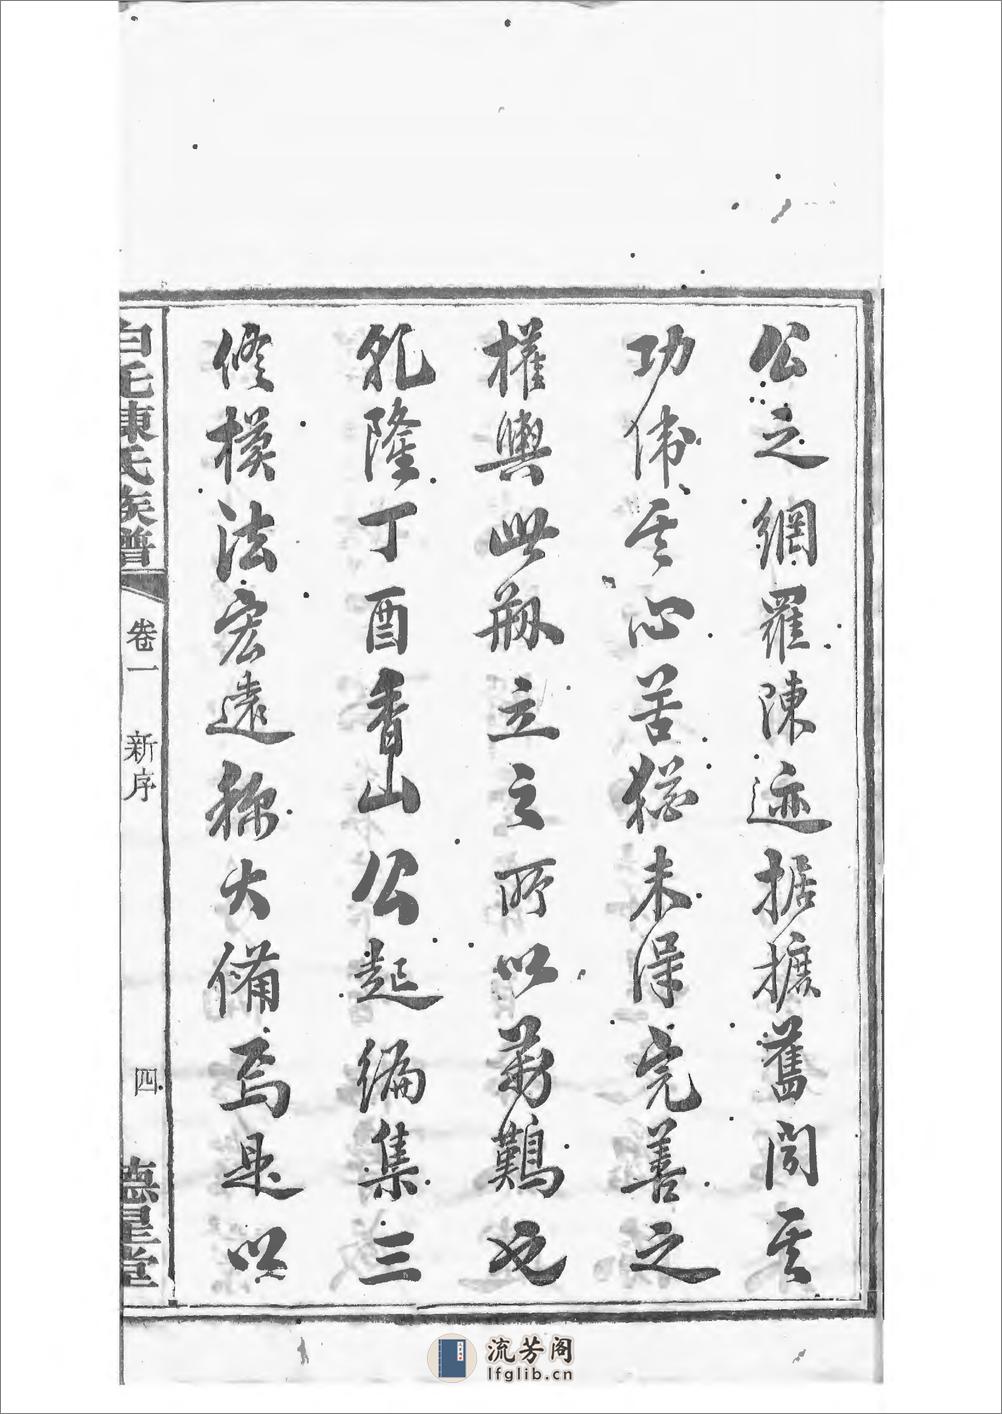 公之網羅陳迹据摭舊聞其
功偉其心苦猶未得完善之
權輿此剏立之所以药難也
乾隆丁酉香山公起編集三
修模法宏遠称大備焉是以
白屯陳氏族譜
卷一
新序
四
德星堂
流芳阁
lfglib.cn